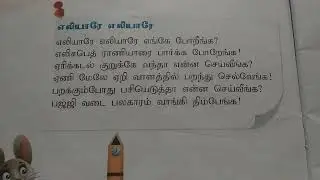 எலியாரே எலியாரே
எலியாரே எலியாரே எங்கே போறீங்க?
எலிசபெத் ராணியாரை பார்க்க போறேங்க!
ஏரிக்கடல் குறுக்கே வந்தா என்ன செய்வீங்க?
ஏணி மேலே ஏறி வானத்தில் பறந்து செல்வேங்க!
பறக்கும்போது பசியெடுத்தா என்ன செய்வீங்க?
பஜ்ஜி வடை பலகாரம் வாங்கி தின்பேங்க!